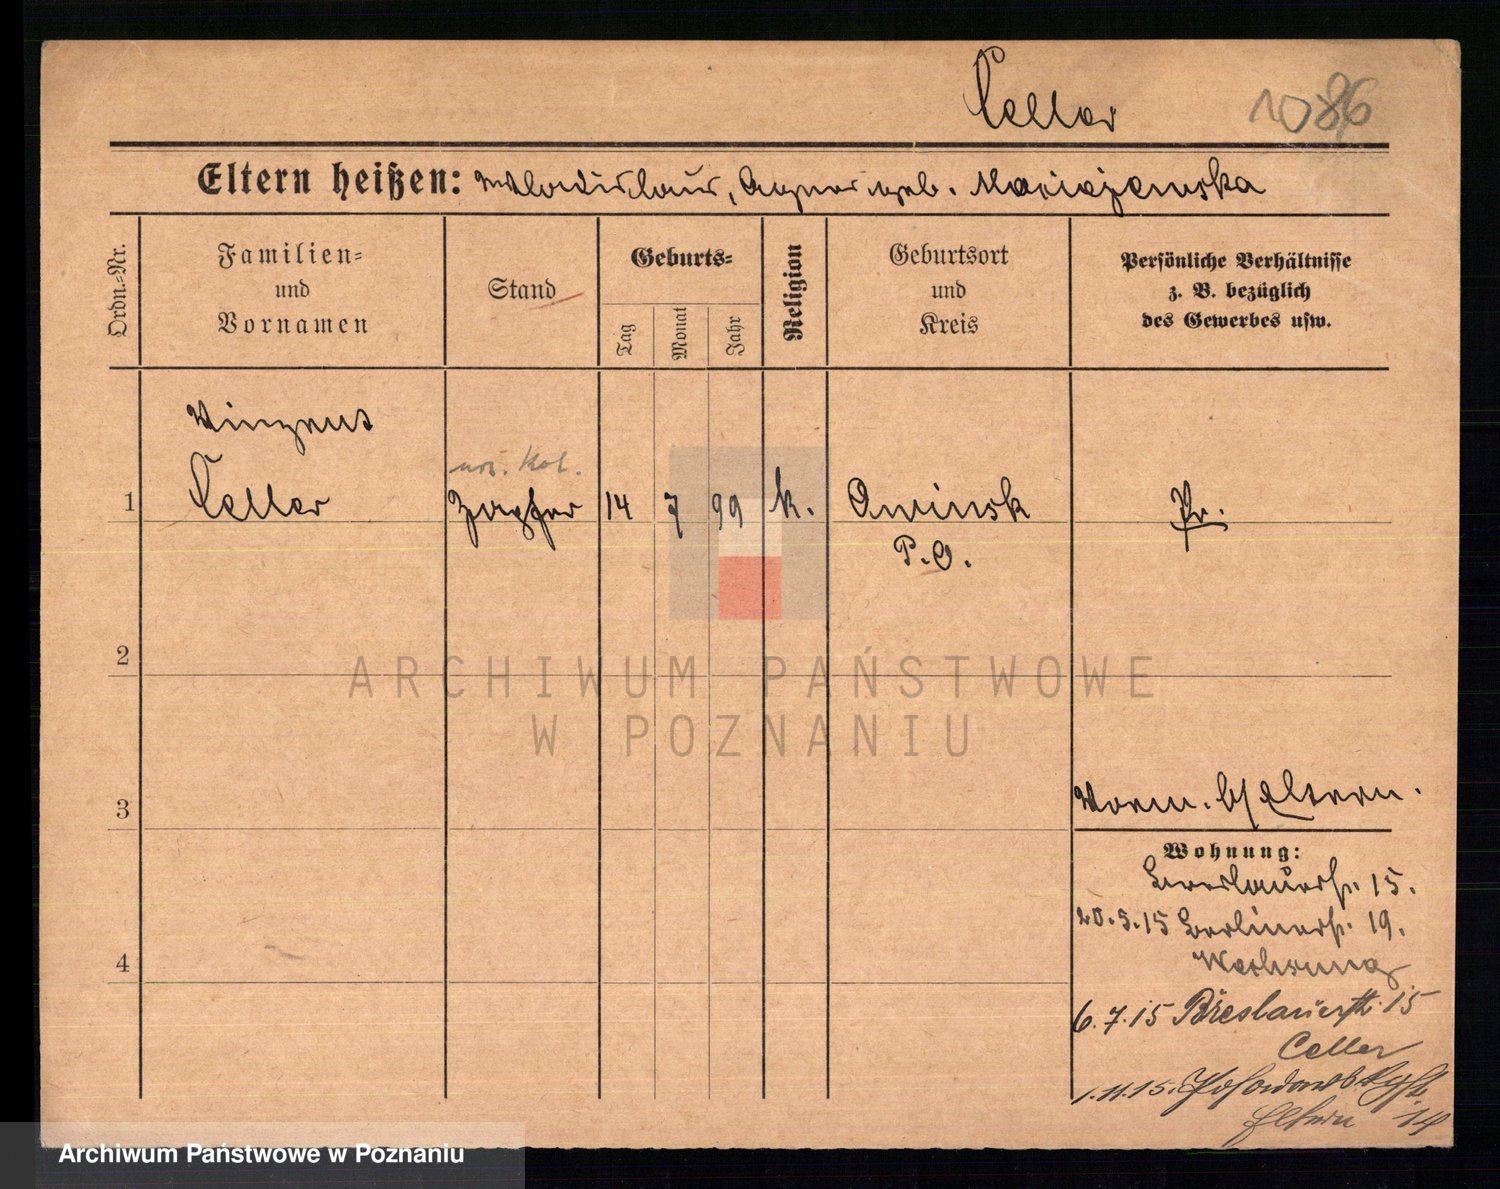 Celler 1086
Eltern heißen: Wladislaus, Agnes geb. Maciejewska
Ordn.-Nr.
Familien=
und
Vornamen
Stand
Geburts=
Tag
Monat
Jahr
Religion
Geburtsort
und
Kreis
Persönliche Verhältnisse
z. B. bezüglich
des Gewerbes usw.
Vinzent
1 Celler 14 7 99 k. Owinsk Pr.
P. O.
2
ARCHIWUM PAŃSTWOWE
W POZNANIU
3 Vorm. b/ Eltern.
Wohnung:
Breslauerstr. 15.
20.5.15 Berlinerstr. 19.
4
6.7.15 Breslauerstr. 15
Celler
1.11.15. Posadowskystr.
Eltern 14
Archiwum Państwowe w Poznaniu